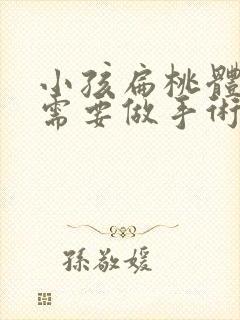 小孩扁桃體
需要做手術
孫敬媛